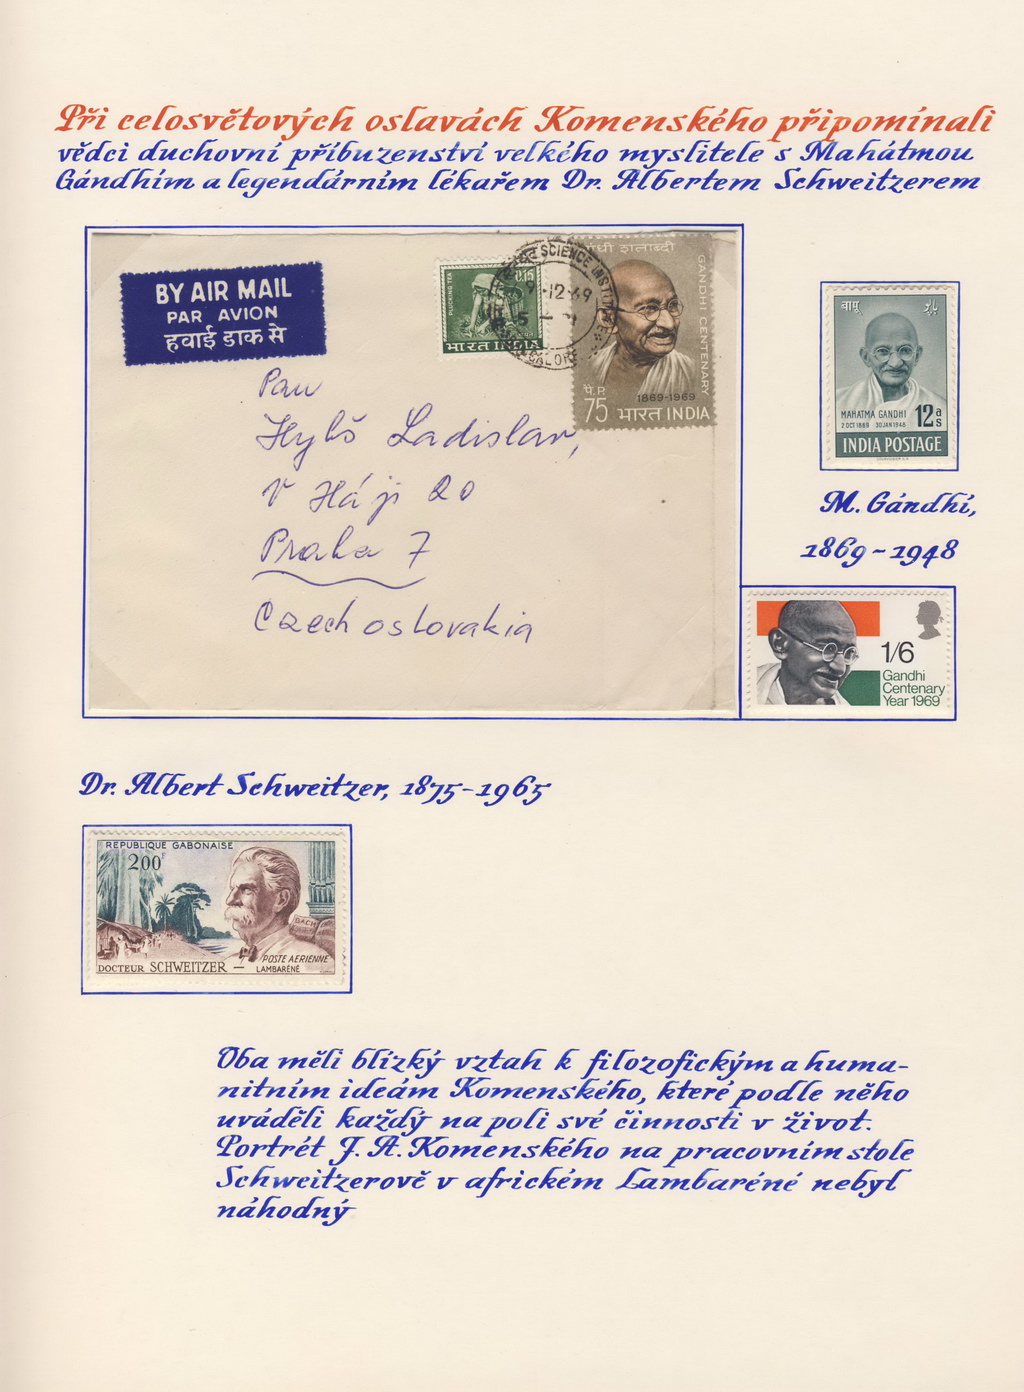 Při celosvětových oslavách Komenského připomínali
vědci duchovní příbuzenství velkého myslitele s Mahátmou
Gándhím a legendárním lékařem Dr. Albertem Schweitzerem
BY AIR MAIL
PAR AVION
हवाई डाक से
PLUCKING TEA
0.15
भारत INDIA
SCIENCE INSTITUTE
9-12-69
गांधी शताब्दी
GANDHI CENTENARY
1869-1969
पै.P.
75 भारत INDIA
Pan
Hylš Ladislav,
V Háji 20
Praha 7
Czechoslovakia
बापू باپو
MAHATMA GANDHI
2 OCT 1869 30 JAN 1948
12 as
INDIA POSTAGE
M. Gándhí,
1869-1948
1/6
Gandhi
Centenary
Year 1969
Dr. Albert Schweitzer, 1875-1965
REPUBLIQUE GABONAISE
200F
BACH
POSTE AERIENNE
DOCTEUR SCHWEITZER — LAMBARÉNÉ
Oba měli blízký vztah k filozofickým a huma-
nitním ideám Komenského, které podle něho
uváděli každý na poli své činnosti v život.
Portrét J. A. Komenského na pracovním stole
Schweitzerově v africkém Lambaréné nebyl
náhodný